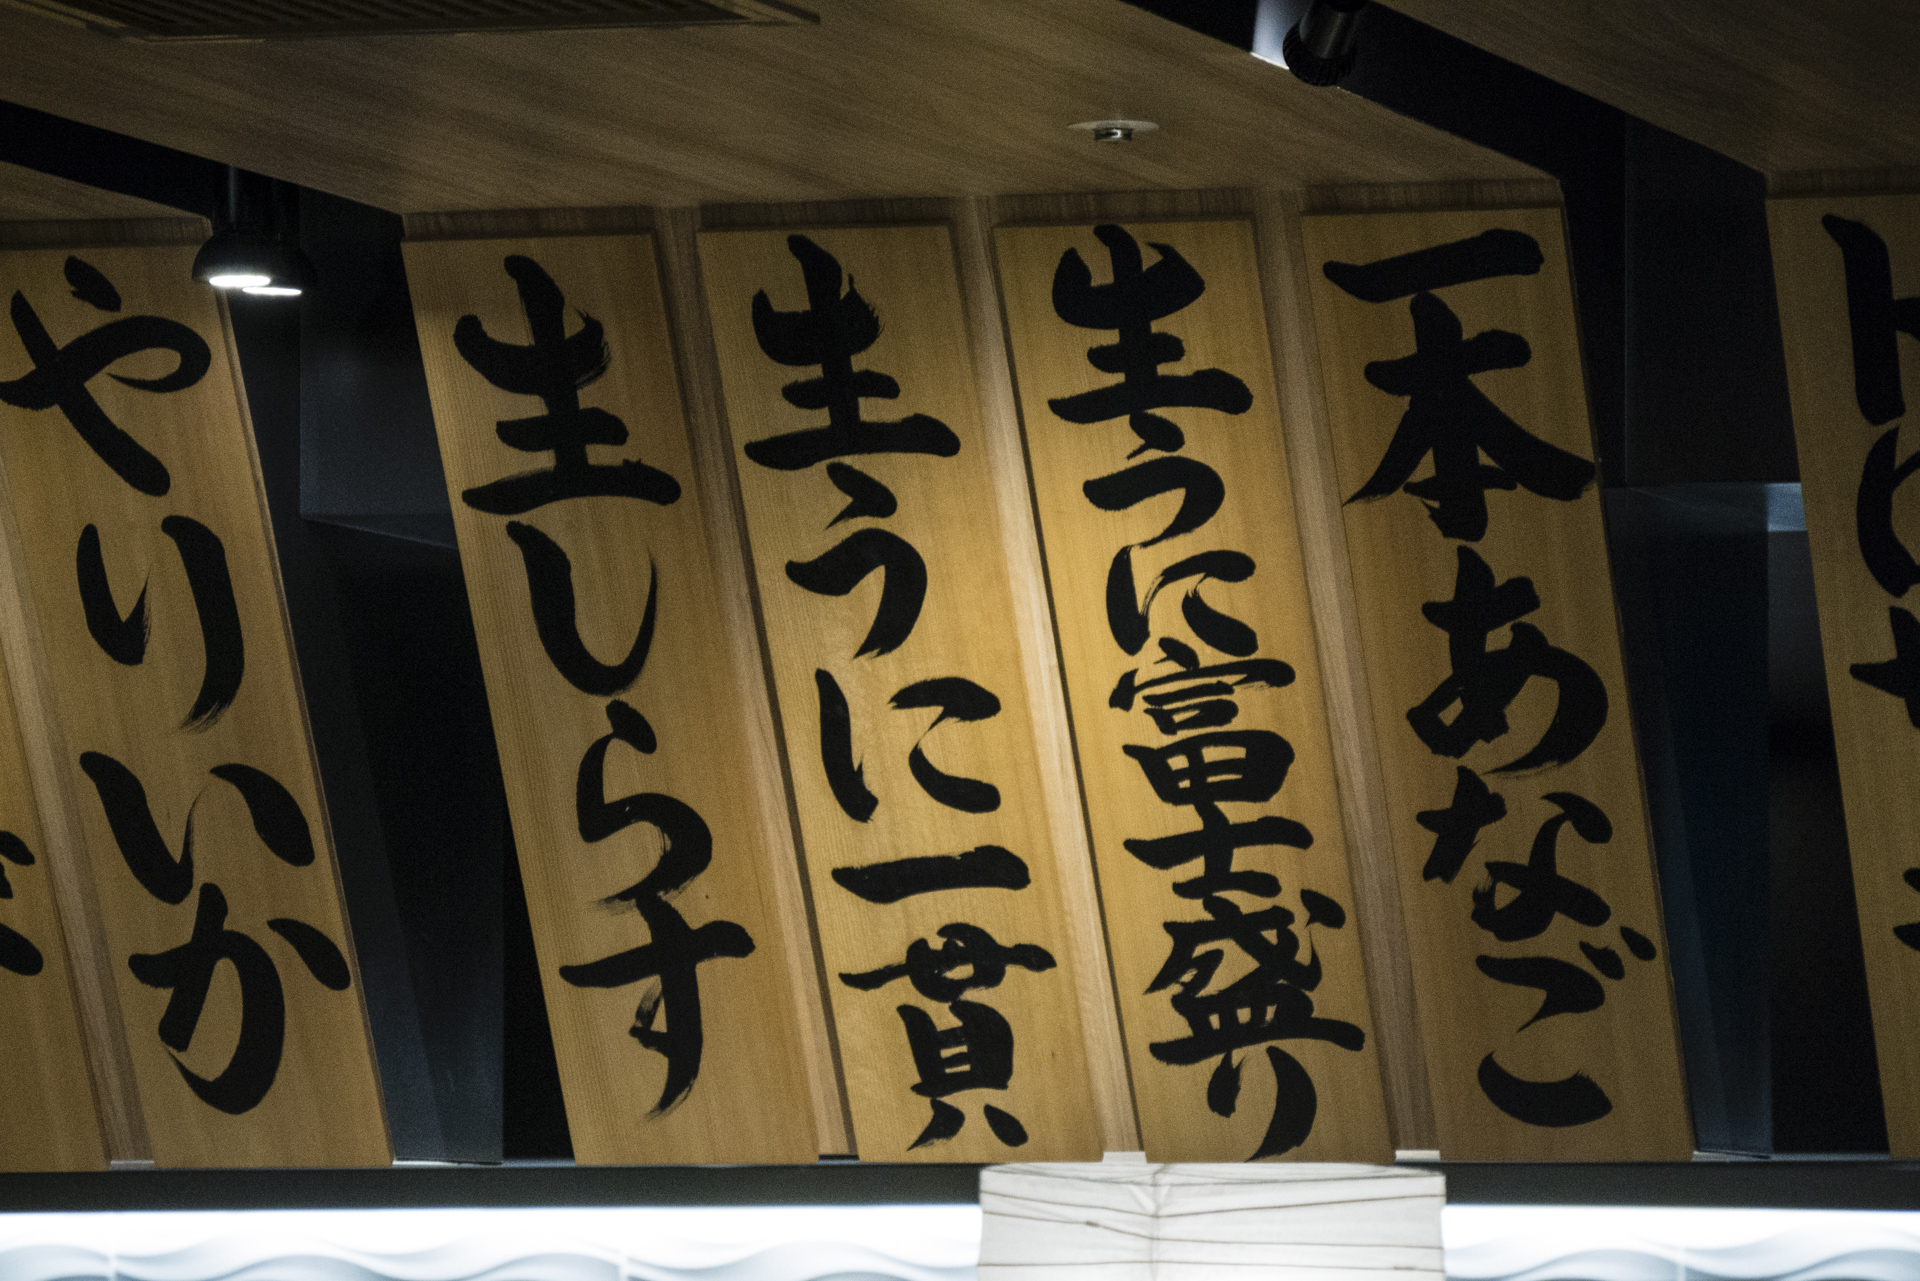 一本あなご
生うに富士盛り
生うに一貫
生しらす
やりいか